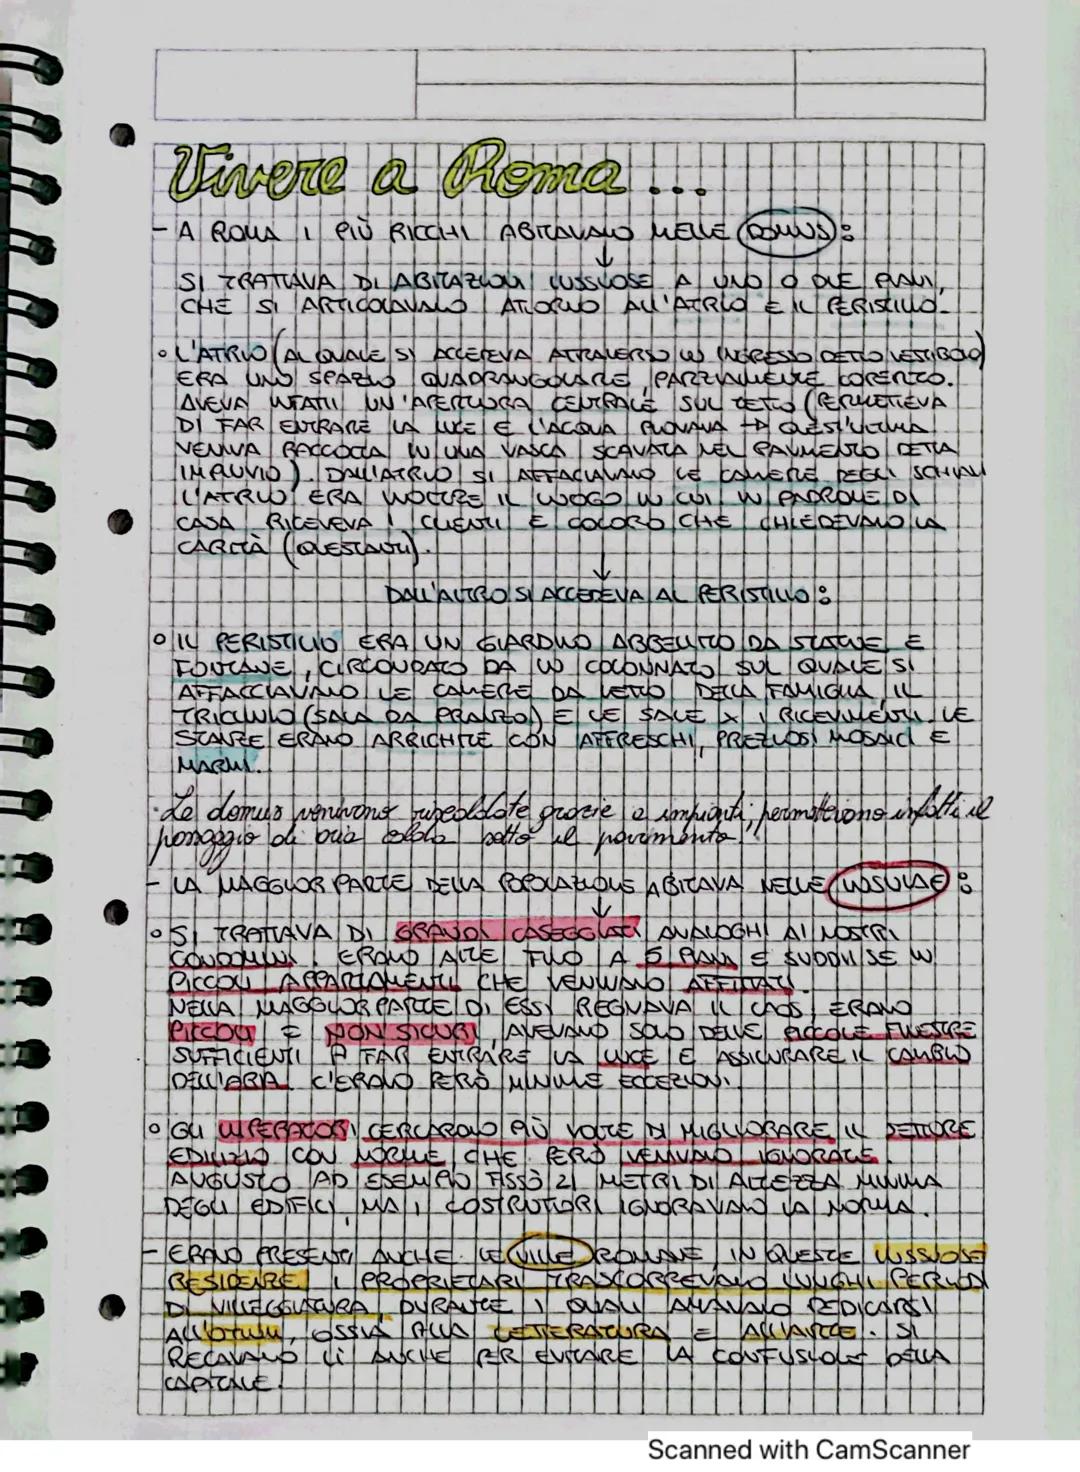 Vivere a Roma...
- A ROMA I PIÙ RICCHI ABITAVANO NELLE DOMUS:
↓
SI TRATTAVA DI ABITAZIONI LUSSUOSE A UNO O DUE PIANI,
CHE SI ARTICOLAVANO ATTORNO ALL'ATRIO E IL PERISTILIO.
• L'ATRIO (AL QUALE SI ACCEDEVA ATTRAVERSO UN INGRESSO DETTO VESTIBOLO)
ERA UNO SPAZIO QUADRANGOLARE, PARZIALMENTE COPERTO.
AVEVA INFATTI UN'APERTURA CENTRALE SUL TETTO (PERMETTEVA
DI FAR ENTRARE LA LUCE E L'ACQUA PIOVANA → QUEST'ULTIMA
VENIVA RACCOLTA IN UNA VASCA SCAVATA NEL PAVIMENTO DETTA
IMPLUVIO). DALL'ATRIO SI AFFACIAVANO LE CAMERE DEGLI SCHIAVI
L'ATRIO ERA INOLTRE IL LUOGO IN CUI IN PADRONE DI
CASA RICEVEVA I CLIENTI E COLORO CHE CHIEDEVANO LA
CARITÀ (QUESTANTI).
↓
DALL'ALTRO SI ACCEDEVA AL PERISTILIO:
• IL PERISTILIO ERA UN GIARDINO ABBELLITO DA STATUE E
FONTANE, CIRCONDATO DA UN COLONNATO SUL QUALE SI
AFFACCIAVANO LE CAMERE DA LETTO DELLA FAMIGLIA, IL
TRICLINIO (SALA DA PRANZO) E LE SALE X I RICEVIMENTI. LE
STANZE ERANO ARRICHITE CON AFFRESCHI, PREZIOSI MOSAICI E
MARMI.
Le domus venivano riscaldate grazie a impianti; permettevano infatti il
passaggio di aria calda sotto il pavimento.
- LA MAGGIOR PARTE DELLA POPOLAZIONE ABITAVA NELLE INSULAE:
↓
• SI TRATTAVA DI GRANDI CASEGGIATI ANALOGHI AI NOSTRI
CONDOMINI. ERANO ALTE FINO A 5 PIANI E SUDDIVISE IN
PICCOLI APPARTAMENTI CHE VENIVANO AFFITTATI.
NELLA MAGGIOR PARTE DI ESSI REGNAVA IL CAOS, ERANO
PICCOLI E NON SICURI, AVEVANO SOLO DELLE PICCOLE FINESTRE
SUFFICIENTI A FAR ENTRARE LA LUCE E ASSICURARE IL CAMBIO
DELL'ARIA. C'ERANO PERÒ MINIME ECCEZIONI.
• GLI IMPERATORI CERCARONO PIÙ VOLTE DI MIGLIORARE IL SETTORE
EDILIZIO CON NORME CHE PERÒ VENIVANO IGNORATE.
AUGUSTO AD ESEMPIO FISSÒ 21 METRI DI ALTEZZA MINIMA
DEGLI EDIFICI, MA I COSTRUTTORI IGNORAVANO LA NORMA.
- ERANO PRESENTI ANCHE LE VILLE ROMANE, IN QUESTE LUSSUOSE
RESIDENZE I PROPRIETARI TRASCORREVANO LUNGHI PERIODI
DI VILLEGGIATURA, DURANTE I QUALI AMAVANO DEDICARSI
ALL'OTIUM, OSSIA ALLA LETTERATURA E ALL'ARTE. SI
RECAVANO LÌ ANCHE PER EVITARE LA CONFUSIONE DELLA
CAPITALE.
Scanned with CamScanner